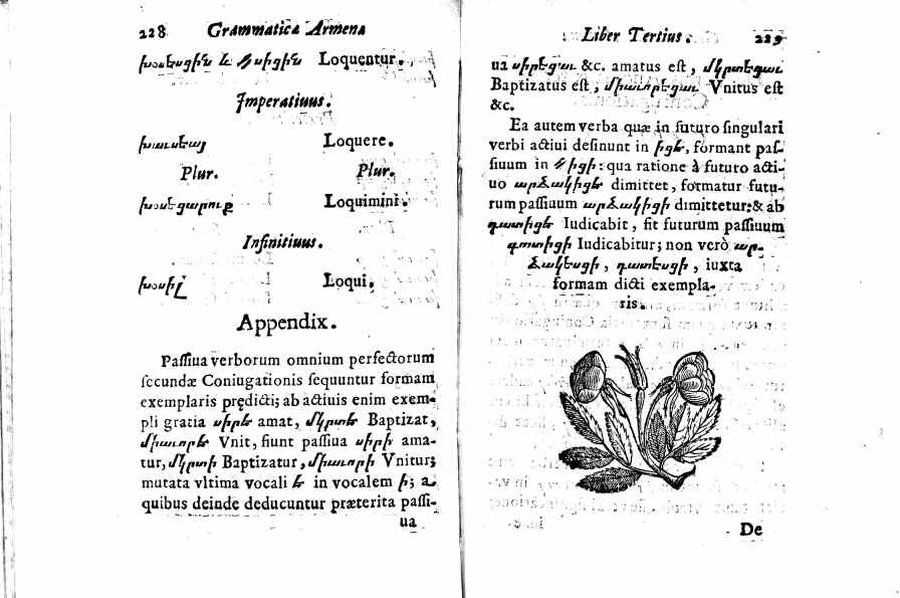 228 Grammatica Armena
խօսեսցին և կսիցին Loquentur.
Imperatiuus.
խաւսեայ Loquere.
Plur. Plur.
խօսեցարուք Loquimini.
Infinitiuus.
խօսիլ Loqui.
Appendix.
Passiua verborum omnium perfectorum
secundæ Coniugationis sequuntur formam
exemplaris prędicti; ab actiuis enim exem-
pli gratia սիրե amat, մկրտե Baptizat,
միաւորե Vnit, fiunt passiua սիրի ama-
tur, մկրտի Baptizatur, միաւորի Vnitur;
mutata vltima vocali ե in vocalem ի; a
quibus deinde deducuntur præterita passi-
ua
Liber Tertius. 229
ua սիրեցաւ &c. amatus est, մկրտեցաւ
Baptizatus est, միաւորեցաւ Vnitus est
&c.
Ea autem verba quæ in futuro singulari
verbi actiui desinunt in իցե, formant pas-
siuum in կիցի: qua ratione à futuro acti-
uo արձակիցե dimittet, formatur futu-
rum passiuum արձակիցի dimittetur: & ab
դատիցե Iudicabit, fit futurum passiuum
դատիցի Iudicabitur; non verò ար-
ձակեսցի, դատեսցի, iuxta
formam dicti exempla-
ris.
De